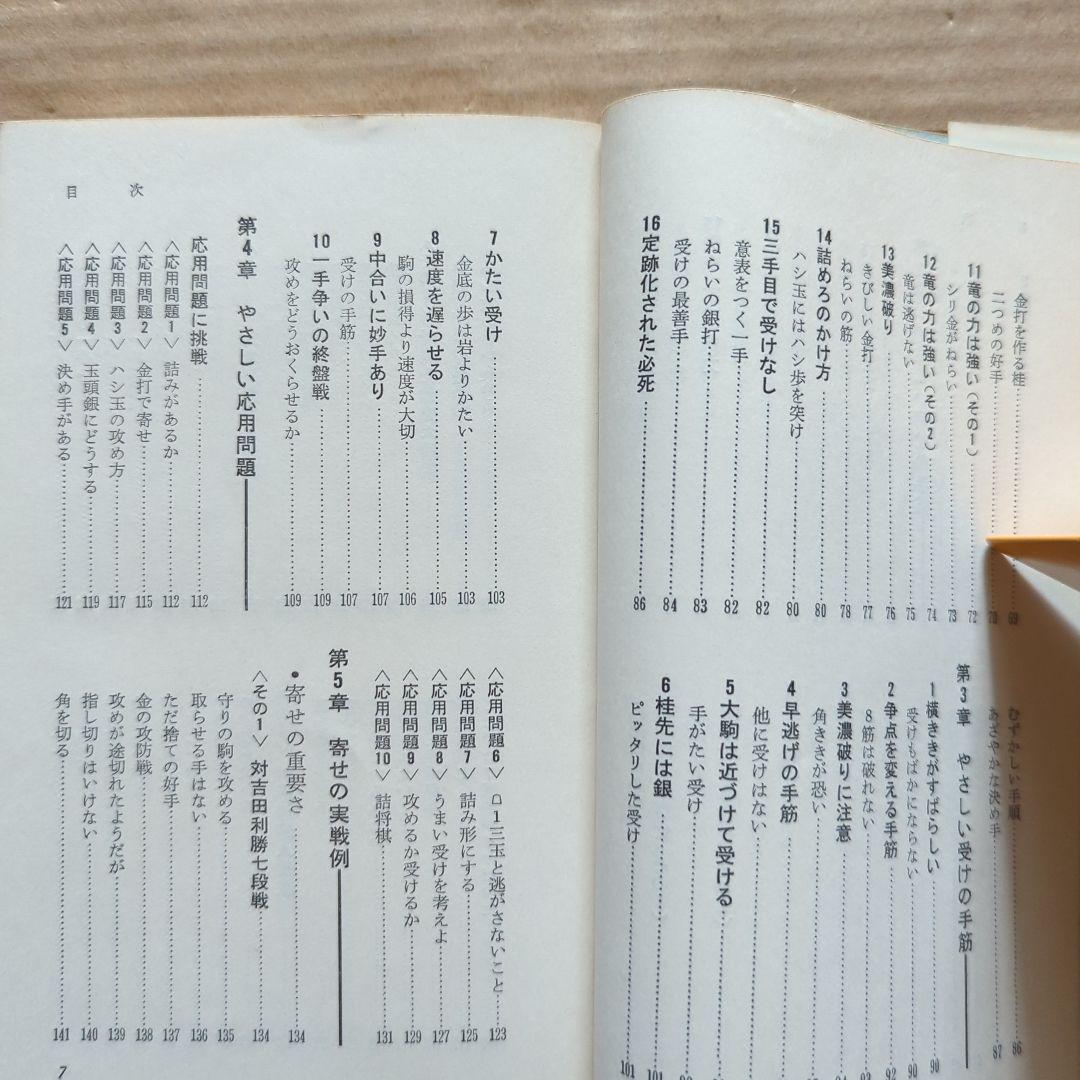 金打を作る桂……69
二つめの好手……70
11 竜の力は強い(その1)……72
シリ金がねらい……73
12 竜の力は強い(その2)……74
竜は逃げない……75
13 美濃破り……76
きびしい金打……77
ねらいの筋……78
14 詰めろのかけ方……80
ハシ玉にはハシ歩を突け……80
15 三手目で受けなし……82
意表をつく一手……82
ねらいの銀打……83
受けの最善手……84
16 定跡化された必死……86
むずかしい手順……86
あざやかな決め手……87
第3章 やさしい受けの手筋
1 横ききがすばらしい……90
受けもばかにならない……90
2 争点を変える手筋……92
8筋は破れない……93
3 美濃破りに注意……
角ききが恐い……
4 早逃げの手筋……
他に受けはない……
5 大駒は近づけて受ける……
手がたい受け……
6 桂先には銀……101
ピッタリした受け……101
目次
7 かたい受け……103
金底の歩は岩よりかたい……103
8 速度を遅らせる……105
駒の損得より速度が大切……106
9 中合いに妙手あり……107
受けの手筋……107
10 一手争いの終盤戦……109
攻めをどうおくらせるか……109
第4章 やさしい応用問題
応用問題に挑戦……112
〈応用問題1〉 詰みがあるか……112
〈応用問題2〉 金打で寄せ……115
〈応用問題3〉 ハシ玉の攻め方……117
〈応用問題4〉 玉頭銀にどうする……119
〈応用問題5〉 決め手がある……121
〈応用問題6〉 ☖1三玉と逃がさないこと……123
〈応用問題7〉 詰み形にする……125
〈応用問題8〉 うまい受けを考えよ……127
〈応用問題9〉 攻めるか受けるか……129
〈応用問題10〉 詰将棋……131
第5章 寄せの実戦例
●寄せの重要さ……134
〈その1〉 対吉田利勝七段戦……134
守りの駒を攻める……135
取らせる手はない……136
ただ捨ての好手……137
金の攻防戦……138
攻めが途切れたようだが……139
指し切りはいけない……140
角を切る……141
7